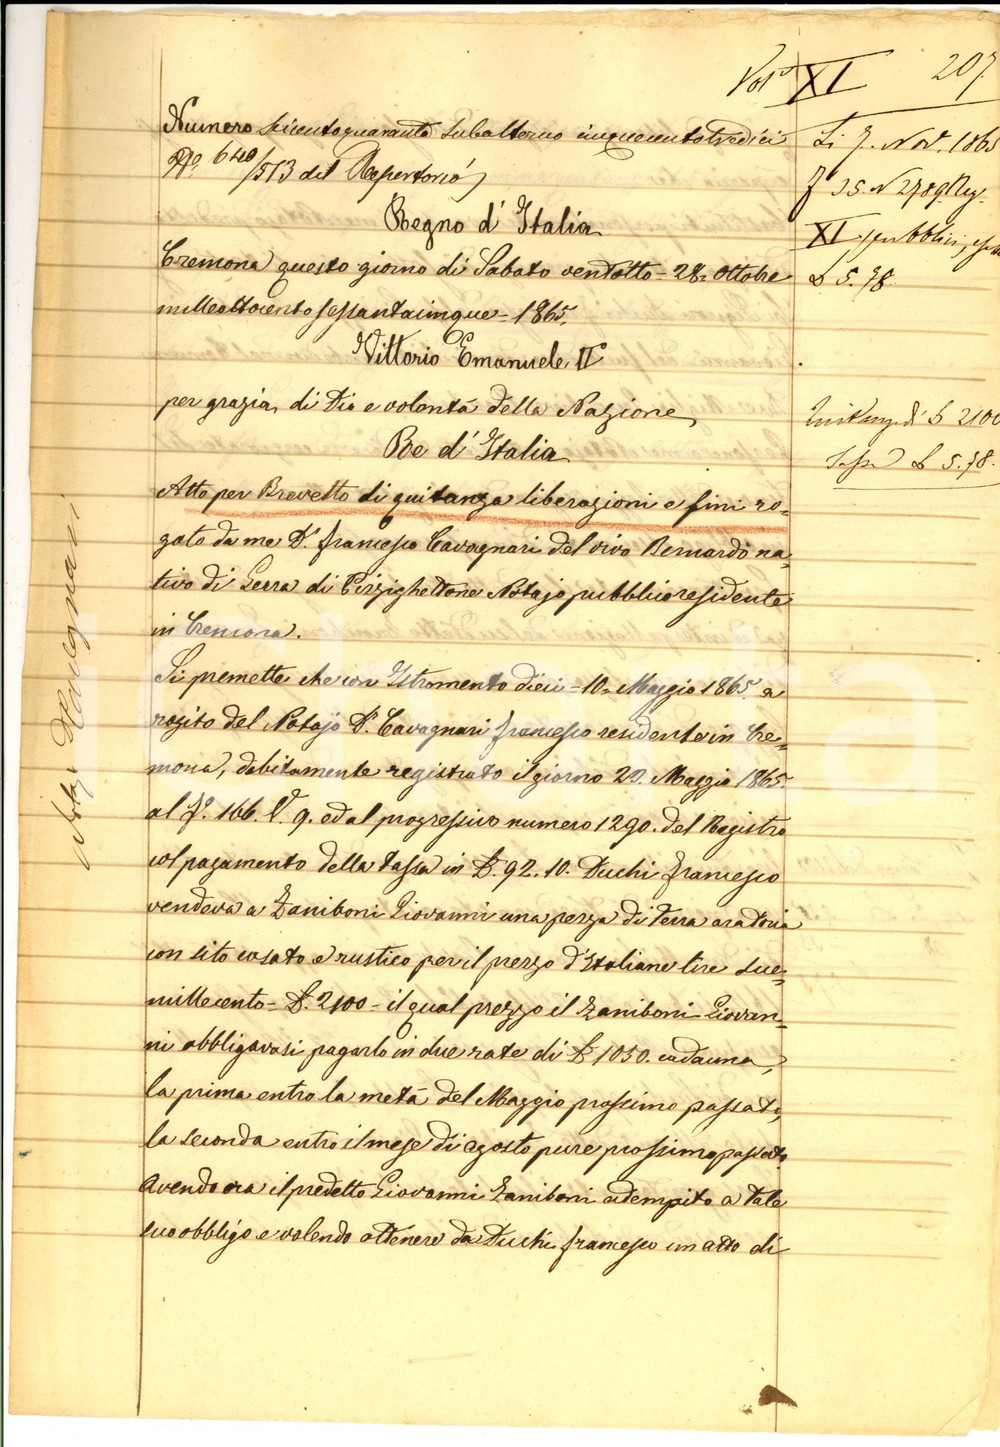 Vol° XI 207.
Numero seicentoquaranta subalterno cinquecentotredici
N.° 640/513 del Repertorio
Regno d'Italia
Cremona questo giorno di Sabato ventotto = 28 = Ottobre
milleottocento sessantacinque = 1865.
Vittorio Emanuele II
per grazia di Dio e volontà della Nazione
Re d'Italia
Atto per Brevetto di quitanza liberazioni e fini ro-
gato da me D.r Francesco Cavagnari del vivo Bernardo na-
tivo di Gerra di Pizzighettone Notajo pubblico residente
in Cremona.
Si premette che con Istromento dieci = 10 = Maggio 1865. a
rogito del Notajo D.r Cavagnari Francesco residente in Cre-
mona, debitamente registrato il giorno 29. Maggio 1865.
al f.° 166. V. 9. ed al progressivo numero 1290. del Registro
col pagamento della tassa in L. 92. 10. Duchi Francesco
vendeva a Zaniboni Giovanni una pezza di terra aratoria
con sito casato e rustico per il prezzo d'Italiane lire due-
millecento = L. 2100 = il qual prezzo il Zaniboni Giovan-
ni obbligavasi pagarlo in due rate di L. 1050. cadauna,
la prima entro la metà del Maggio prossimo passato,
la seconda entro il mese di agosto pure prossimo passato
Avendo ora il predetto Giovanni Zaniboni adempito a tale
suo obbligo e volendo ottenere da Duchi Francesco un atto di
Li 7. Nov. 1865
f° 25. N 2789. Reg.
XI pubblici,
L 5. 78
Quitanza di L 2100
Tassa L 5. 78.